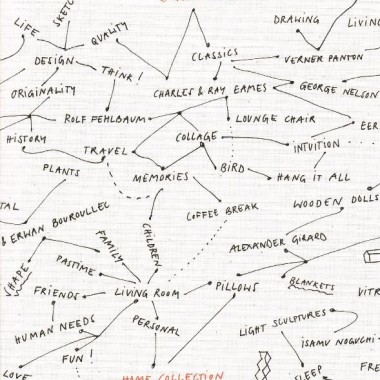 SKETC
DRAWING
LIVING
LIFE
QUALITY
CLASSICS
VERNER PANTON
DESIGN
THINK!
ORIGINALITY
CHARLES & RAY EAMES
GEORGE NELSON
ROLF FEHLBAUM
LOUNGE CHAIR
EER
HISTORY
COLLAGE
INTUITION
TRAVEL
PLANTS
MEMORIES
BIRD
HANG IT ALL
TAL
COFFEE BREAK
WOODEN DOLLS
& ERWAN BOUROULLEC
FAMILY
CHILDREN
ALEXANDER GIRARD
SHAPE
PASTIME
FRIENDS
LIVING ROOM
PILLOWS
BLANKETS
VITR
HUMAN NEEDS
PERSONAL
LIGHT SCULPTURES
ISAMU NOGUCHI
FUN!
LOVE
HOME COLLECTION
SLEEP
FRE